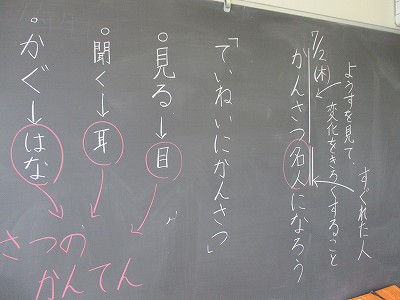 すぐれた人
ようすを見て、
変化をきろくすること
7/2(木)
かんさつ名人になろう
「ていねいにかんさつ」
•見る→目
•聞く→耳
•かぐ→はな
さつの
かんてん